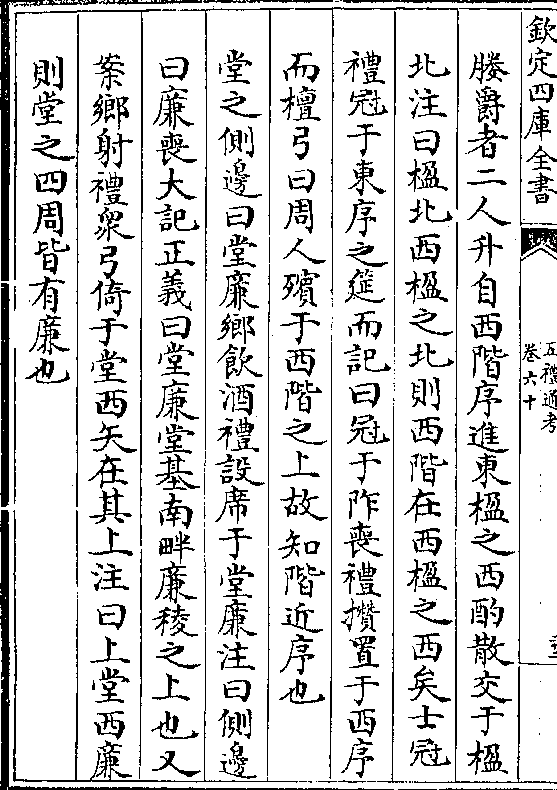 欽定四庫全書
五禮通考
卷六十
媵爵者二人升自西階序進東楹之西酌散交于楹
北注曰楹北西楹之北則西階在西楹之西矣士冠
禮冠于東序之筵而記曰冠于阼喪禮攢置于西序
而檀弓曰周人殯于西階之上故知階近序也
堂之側邊曰堂廉鄉飲酒禮設席于堂廉注曰側邊
曰廉喪大記正義曰堂廉堂基南畔廉稜之上也又
案鄉射禮衆弓倚于堂西矢在其上注曰上堂西廉
則堂之四周皆有廉也